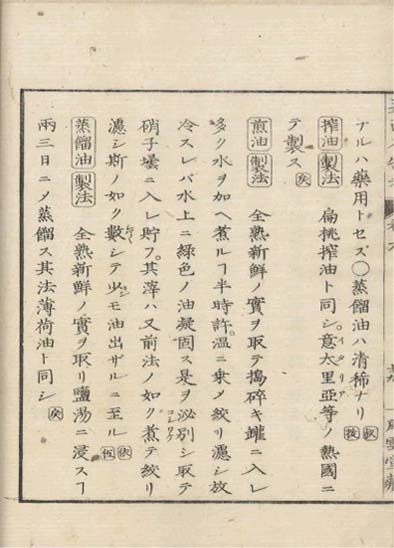 ナルハ藥用トセズ〇蒸餾油ハ清稀ナリ
搾油製法 扁桃搾油ト同シ。意太里亞等ノ熱國ニ
イタリア
テ製ス
煎油製法 全熟新鮮ノ實ヲ取テ搗碎キ罐ニ入レ
多ク水ヲ加ヘ煮ルヿ半時許。溫ニ乗メ絞リ濾シ放
冷スレバ水上ニ綠色ノ油凝固ス是ヲ泌別シ取テ
硝子壜ニ入レ貯フ。其滓ハ又前法ノ如ク煮テ絞リ
濾シ斯ノ如ク數シテ少モ油出ザルニ至ル
蒸餾油製法 全熟新鮮ノ實ヲ取リ鹽湯ニ浸スヿ
兩三日ニメ蒸餾ス其法薄荷油ト同シ